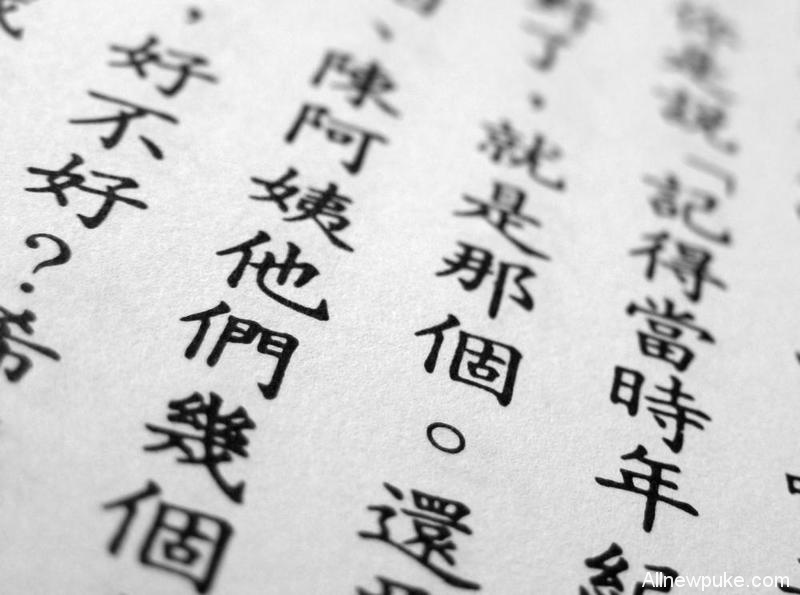 你是說「記得當時年紀
對了，就是那個。還
、陳阿姨他們幾個
，好不好？希
Allnewpuke.com